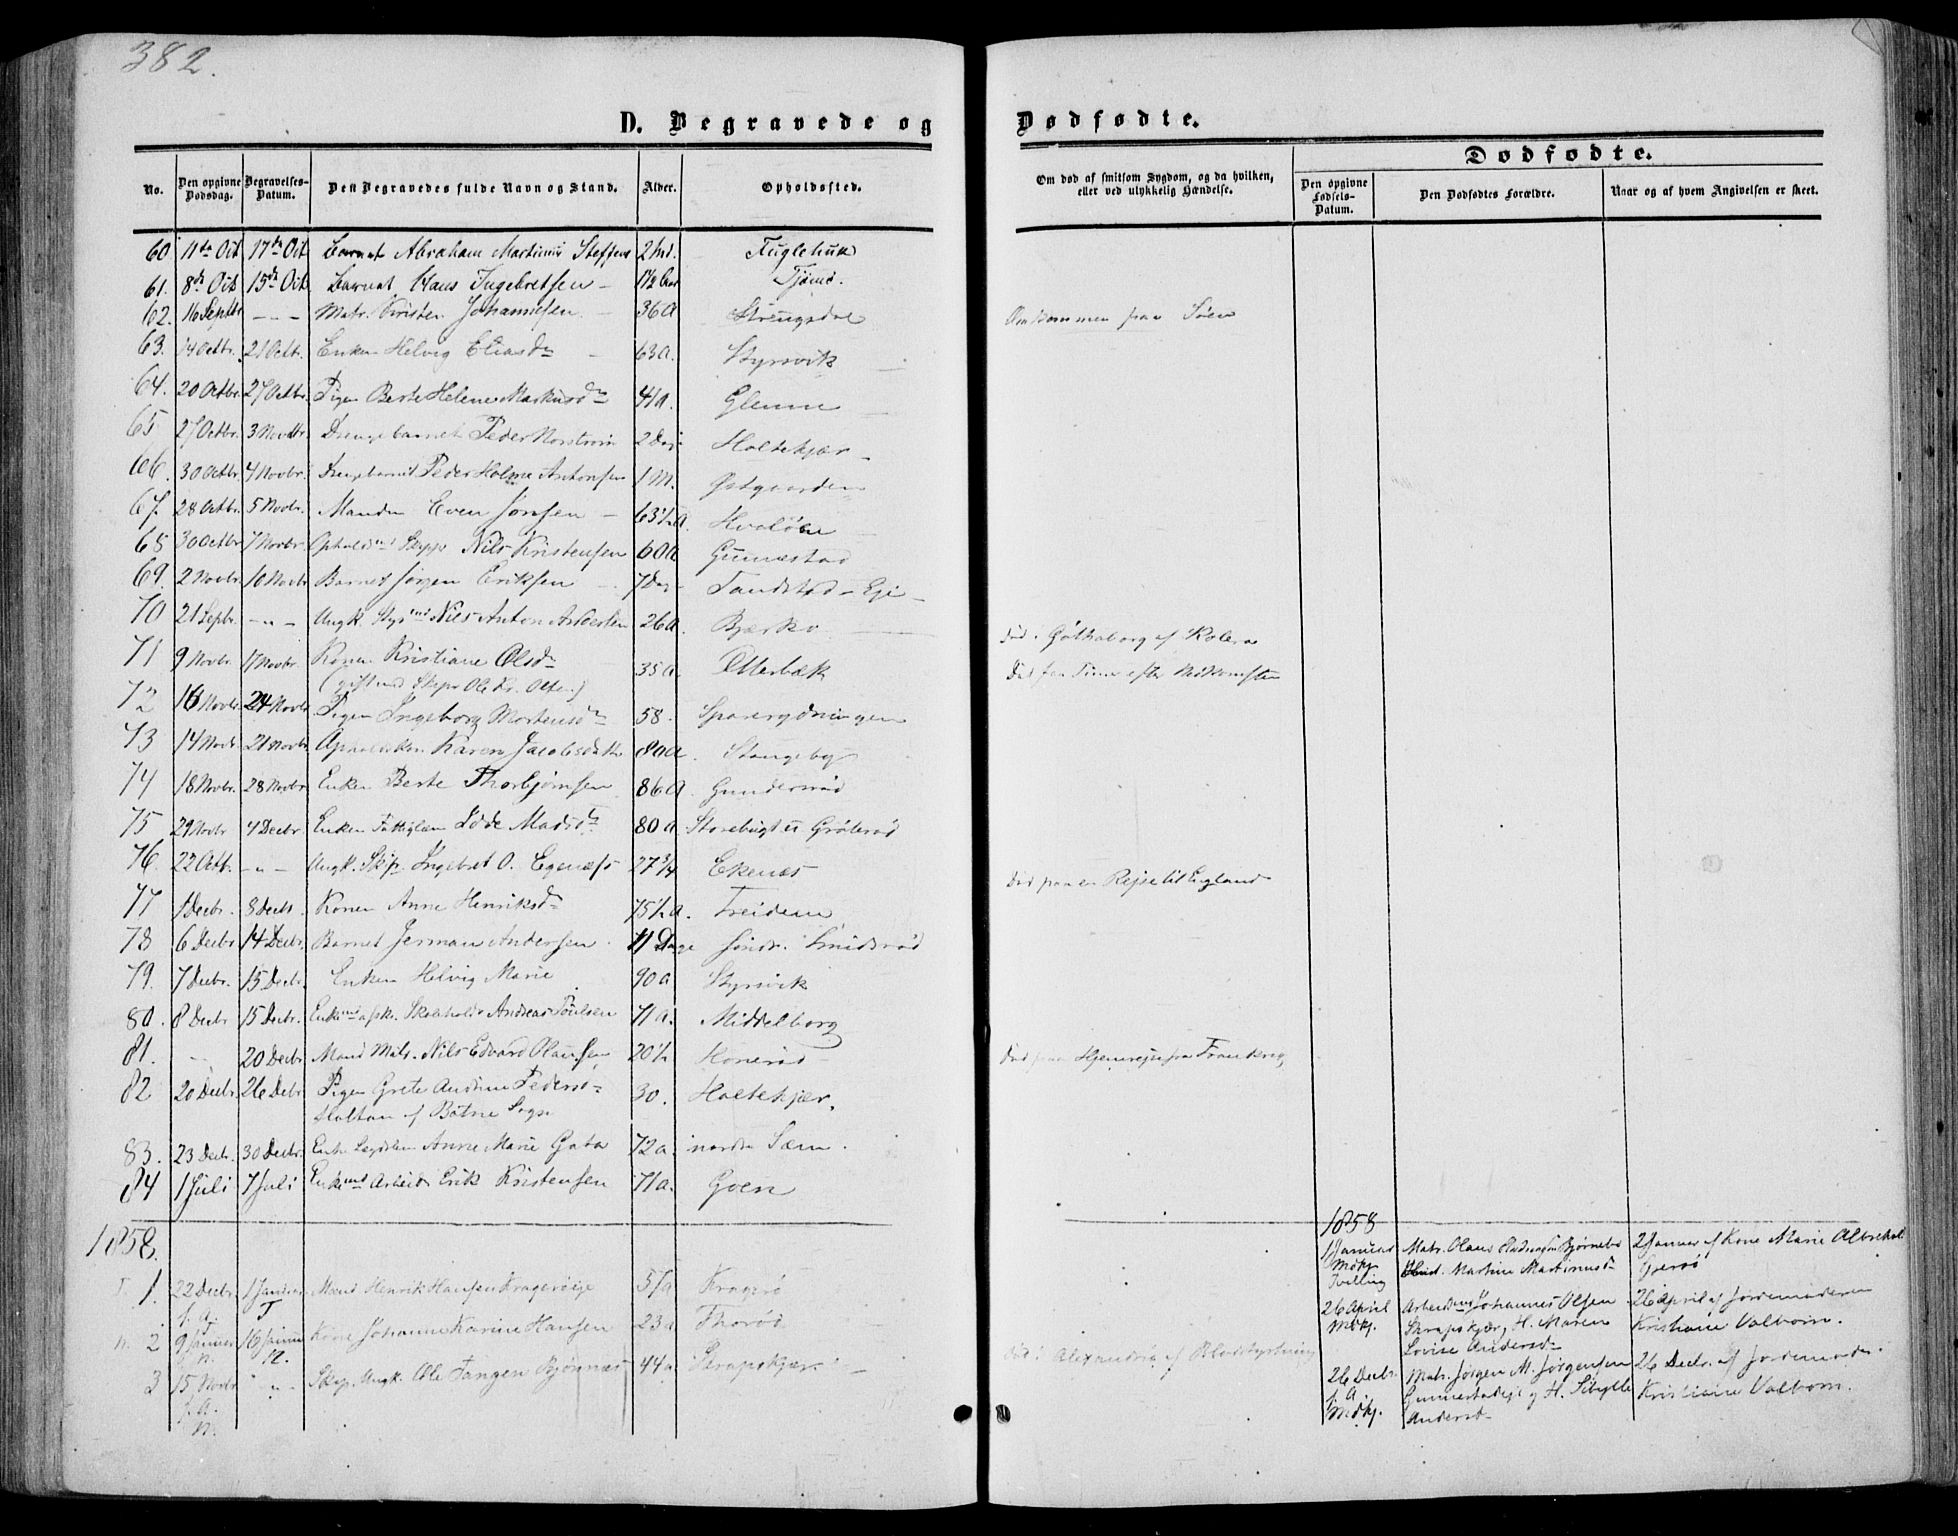 382.
D. Begravede og Dødfødte.
No. Den opgivne Dødsdag. Begravelses-Datum. Den Begravedes fulde Navn og Stand. Alder. Opholdssted. Om død af smitsom Sygdom, og da hvilken, eller ved ulykkelig Hændelse.
Dødfødte.
Den opgivne Fødsels-Datum. Den Dødfødtes Forældre. Naar og af hvem Angivelsen er skeet.
60 11te Oct 17de Oct Barnet Abraham Martinius Steffens 2 Md. Fuglehuk
61. 8de Oct. 15de Oct. Barnet Hans Ingebretsen 1½ Aar Tjømø.
62. 16 Septbr. - - - Matr. Krister Johannesen 36 A Strengsdal Omkommen paa Søen
63. 14 Octbr. 21 Octb. Enken Helvig Eliasdr 63 a. Styrsvik
64. 20 Octbr. 27 Octbr. Pigen Berte Helene Markusdr 41 a. Glenne
65 27 Octbr. 3 Novbr. Drengebarnet Peder Norstrøm 2 Dag Holtekjær
66. 30 Octbr. 4 Novbr. Drengebarnet Peder Holme Antonsen 1 M. Østgaarden
67. 28 Octbr. 5 Novbr. Manden Even Jonsen 63½ A. Hvaløen
68 30 Octbr 7 Novbr. Opholdsmd Skipp. Nils Kristensen 60 a Gunnestad
69. 2 Novbr. 10 Novbr Barnet Jørgen Eriksen 7 Dag Sandstød - Eje
70 21 Sepbr. - " - Ungk. Styrmd Nils Anton Andersen 26 a. Bjerkø Død i Gøthaborg af Kolera
71 9 Novbr. 17 Novbr. Konen Kristiane Olsdr 35 a. Otterbæk Død faa Timer efter Nedkomsten
(gift med Skipr Ole Kr. Olsen.)
72 16 Novbr. 24 Novbr Pigen Ingeborg Mortensdr 58. Sparerydningen
73 14 Novbr. 21 Novbr. Opholdenken Karen Jacobsdatter 80 a. Stangeby
74 18 Novbr. 28 Novbr. Enken Berte Thorbjørnsen 86 A Gundersrød
75 29 Novbr 7 Decbr. Enken Fattiglem Lydde Madsdr. 80 a Storebugt u. Grøterød
76. 22 Octb. - " - Ungk. Skipr Ingebret O. Egenæss 27¾ Ekenæs Død paa en Rejse til England
77 1 Decbr. 8 Decbr. Konen Anne Henriksdr 75½ a. Treidene
78 6 Decbr 14 Decbr. Barnet Jerman Andersen. 11 Dage Søndr. Smidsrød
79. 7 Decbr. 15 Decbr. Enken Helvig Marie 90 a. Styrsvik
80. 8 Decbr 15 Decbr. Enkemd afsk. Skoleholdr Andreas Poulsen 71 a. Middelborg
81. - 20 Decbr. Mand Matr. Nils Edvard Olaussen 20½ Honerød Død paa Hjemrejse fra Frankrig
82 20 Decbr. 26 Debr. Pigen Grete Andrine Pedersdr 30. Holtekjær.
Holtan af Botne Sogn
83. 23 Decbr. 30 Decbr. Enke Legdslem Anne Marie Gata 72 a. nordre Sæm.
84 1 Juli 7 Juli Enkemd Arbeids Erik Kristensen 71 a. Goen
1858.
1. 22 Decbr. f. A. 1 Januar T Mand Henrik Hansen Kragerøeje 51 a Kragerø
2 9 Januar n. 16 Januar n. Kone Johanne Karine Hansen 23 a Thorød
3 15 Novbr f. a. n. " " Skip. Ungk. Ole Tangen Bjønnes 44 a. Skrapskjær. Død i Alexandria af Blodstyrtning
1858
1 Januar Mdkj Tvilling Matr. Olaus Andreassen Bjørnebo Hust. Martine Martinusdr 2 Januar af Kone Marie Albrekt Gjerø
26 April Mdkj. Arbeidsmd Johannes Olsen Skrapskjær, H. Maren Lovise Andersdr 26 April af Jordemoderen Kristiane Valborn.
26 Decbr. f. A. Mdkj. Matr. Jørgen M. Jørgensen Gunnestadeje og H. Sibylle Andersdr 26 Decbr. af Jordemoder. Kristiane Valborn.